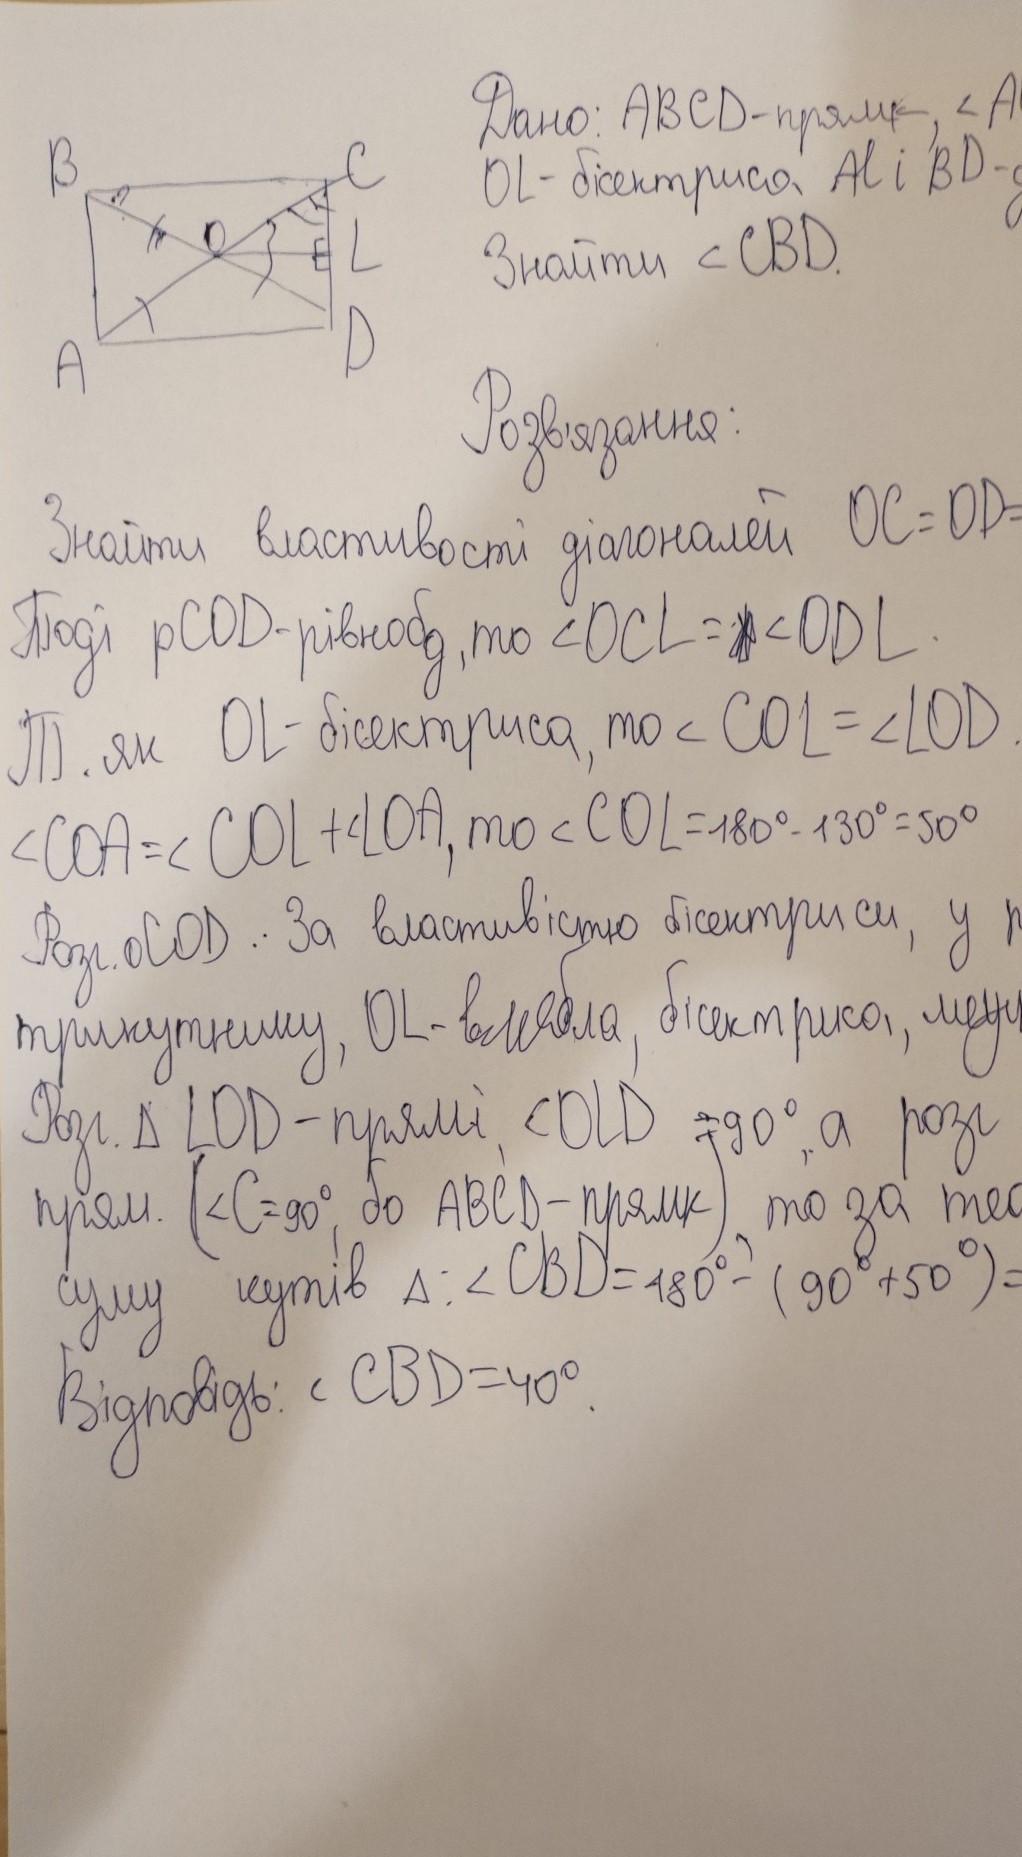 Дано: ABCD-прямк, <A
B
C
OL-бісектриса, AC і BD-д
O
L
Знайти <CBD.
A
D
Розв'язання:
Знайти властивості діагоналей OC=OD=
Тоді △COD-рівнобд, то <OCL=<ODL.
Т. як OL-бісектриса, то <COL=<LOD.
<COA=<COL+<LOA, то <COL=180°-130°=50°
Розг. △COD. За властивістю бісектриси, у р
трикутнику, OL- бісектриса, медіа
Розг. △ LOD-прямі, <OLD =90°, а розг
прям. (<C=90°, бо ABCD-прямк) то за тео
суму кутів △: <CBD=180°-(90°+50°)=
Відповідь: <CBD=40°.